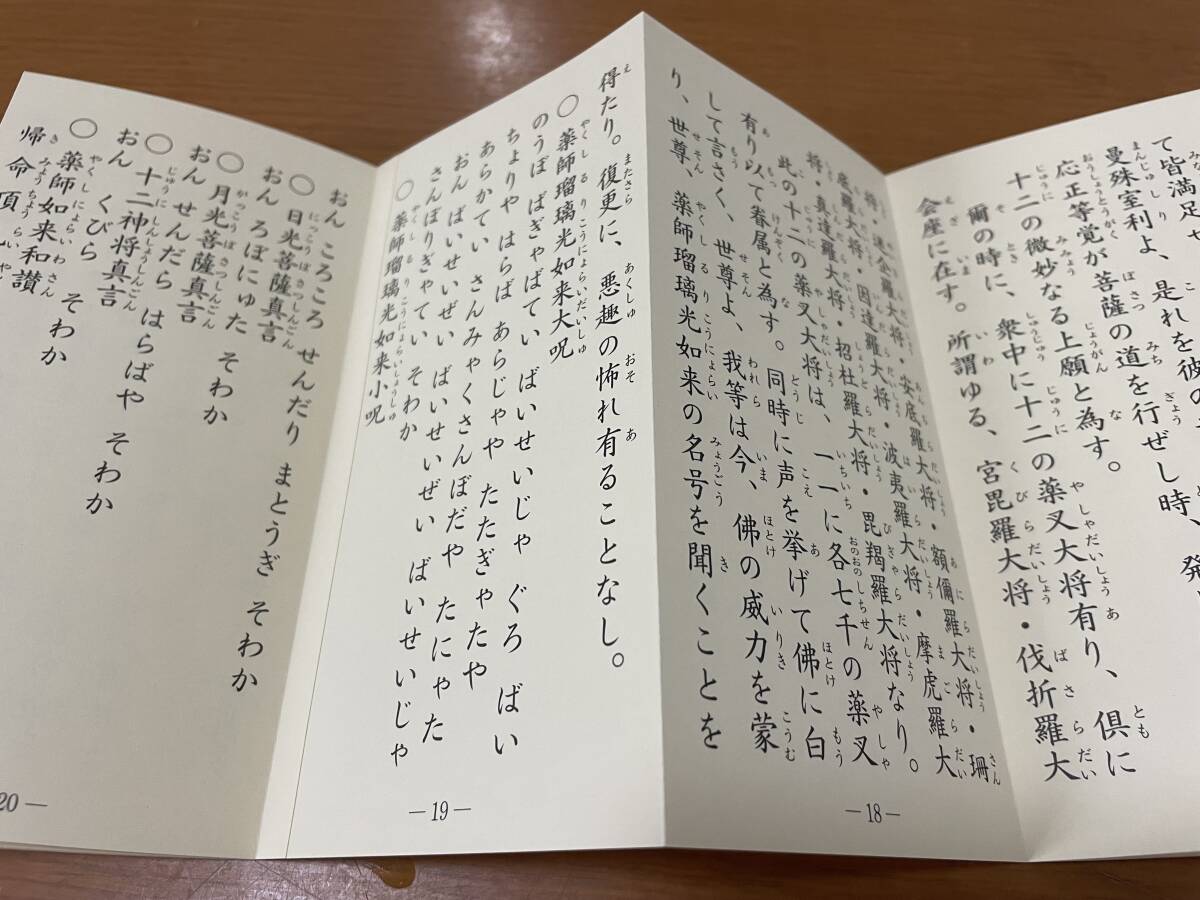 て皆満足せ
曼殊室利よ、是れを彼の
応正等覚が菩薩の道を行ぜし時、発
十二の微妙なる上願と為す。
爾の時に、衆中に十二の薬叉大将有り、倶に
会座に在す。所謂ゆる、宮毘羅大将・伐折羅大
将・迷企羅大将・安底羅大将・頞儞羅大将・珊
底羅大将・因達羅大将・波夷羅大将・摩虎羅大
将・真達羅大将・招杜羅大将・毘羯羅大将なり。
此の十二の薬叉大将は、一一に各七千の薬叉
有り以て眷属と為す。同時に声を挙げて佛に白
して言さく、世尊よ、我等は今、佛の威力を蒙
り、世尊、薬師瑠璃光如来の名号を聞くことを
—18—
得たり。復更に、悪趣の怖れ有ることなし。
○薬師瑠璃光如来大呪
のうぼ ばぎゃばてい ばいせいじゃ ぐろ ばい
ちょりや はらば あらじゃや たたぎゃたや
あらかてい さんみゃくさんぼだや たにゃた
おん ばいせいぜい ばいせいぜい ばいせいじゃ
さんぼりぎゃてい そわか
○薬師瑠璃光如来小呪
—19—
おん ころころ せんだり まとうぎ そわか
○日光菩薩真言
おん ろぼにゅた そわか
○月光菩薩真言
おん せんだら はらばや そわか
○十二神将真言
おん くびら そわか
○薬師如来和讃
帰命頂
20—